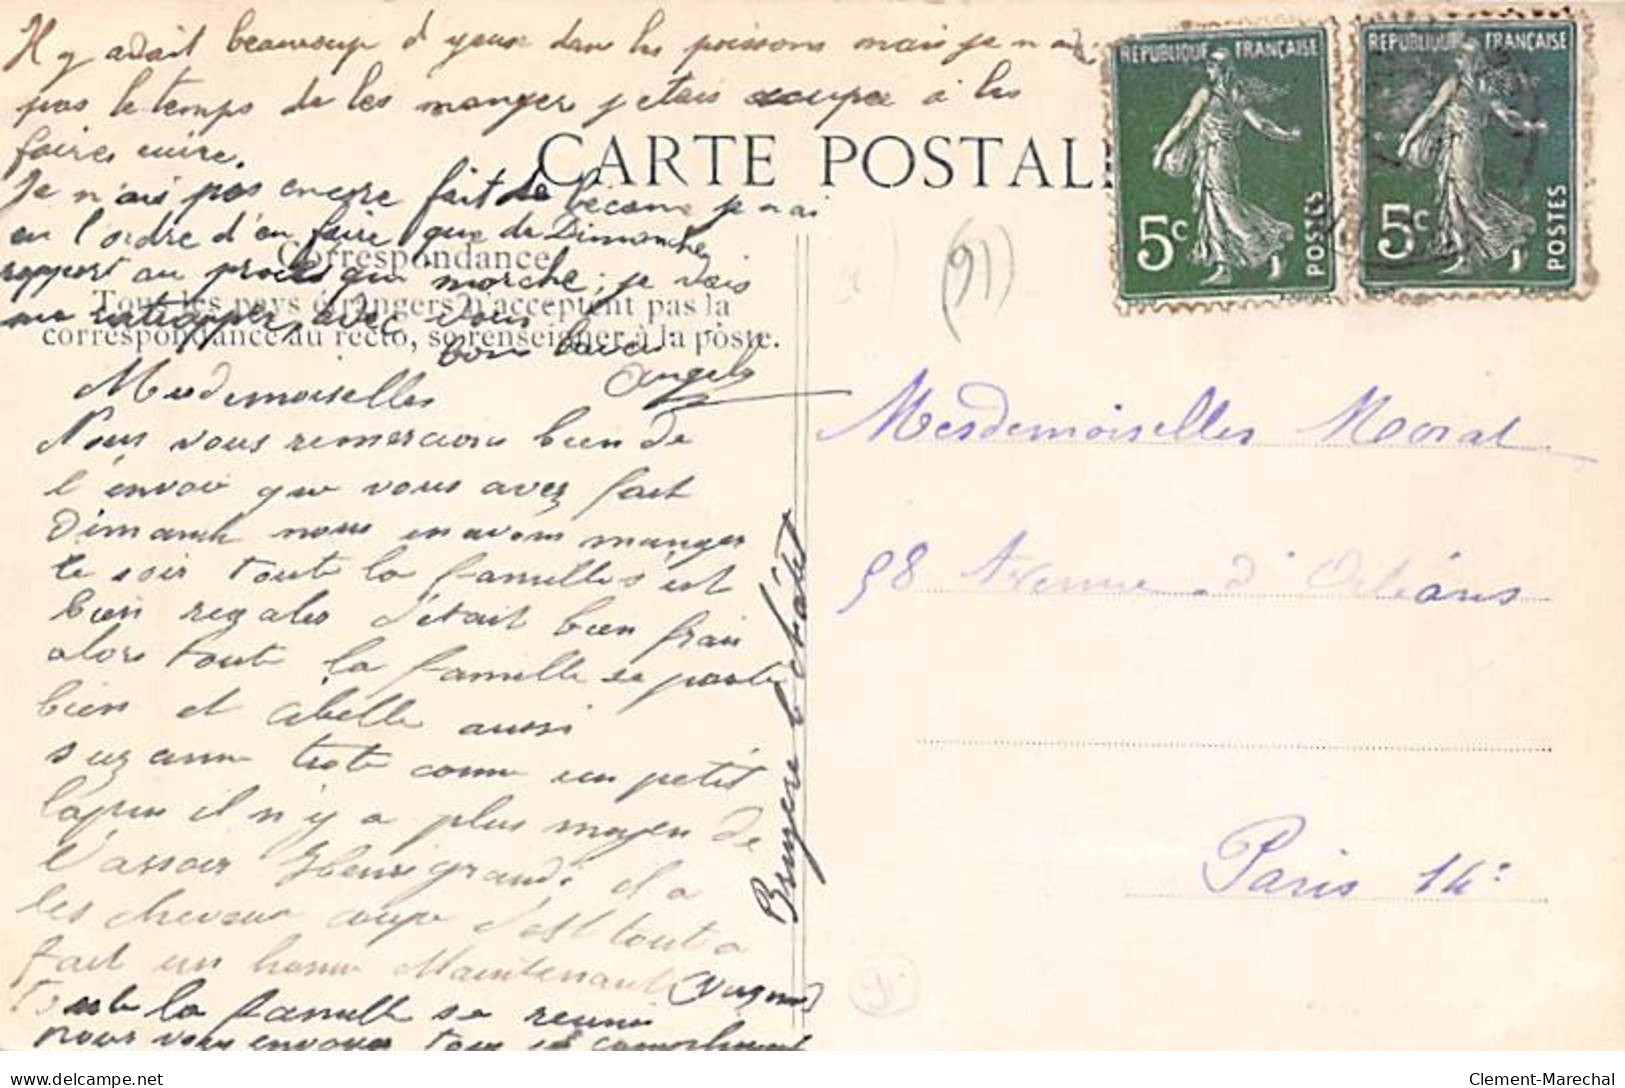 Il y avait beaucoup d yeux dans les poissons mais je n ai
pas le temps de les manger j etais occupée à les
faires cuire.
Je n'ais pas encore fait de becane je n ai
eu l'ordre d'en faire que de Dimanche
rapport au procès qui marche; je vais
me rattrapper, avec vous
bons baisers
Angele
CARTE POSTAL
Correspondance
Tous les pays étrangers n'acceptent pas la
correspondance au recto, se renseigner à la poste.
Mesdemoiselles
Nous vous remercions bien de
l'envoie que vous avez fait
Dimanch nous en avons manger
le soir toute la familles est
bien regaler s'était bien frais
alors toute la famille se porte
bien et abelle aussi
suzanne trote comme un petit
lapin il n'y a plus moyen de
l'assoir Henri grandi il a
les cheveux coupe s'est tout a
fait un homme Maintenant
toute la famille se reunie
nous vous envoyer tous se compliment
Bruyere le chatel
REPUBLIQUE FRANÇAISE
5c
POSTES
REPUBLIQUE FRANÇAISE
5c
POSTES
(91)
Mesdemoiselles Morat
98 Avenue d'Orléans
Paris 14e
delcampe.net
Clement-Marechal